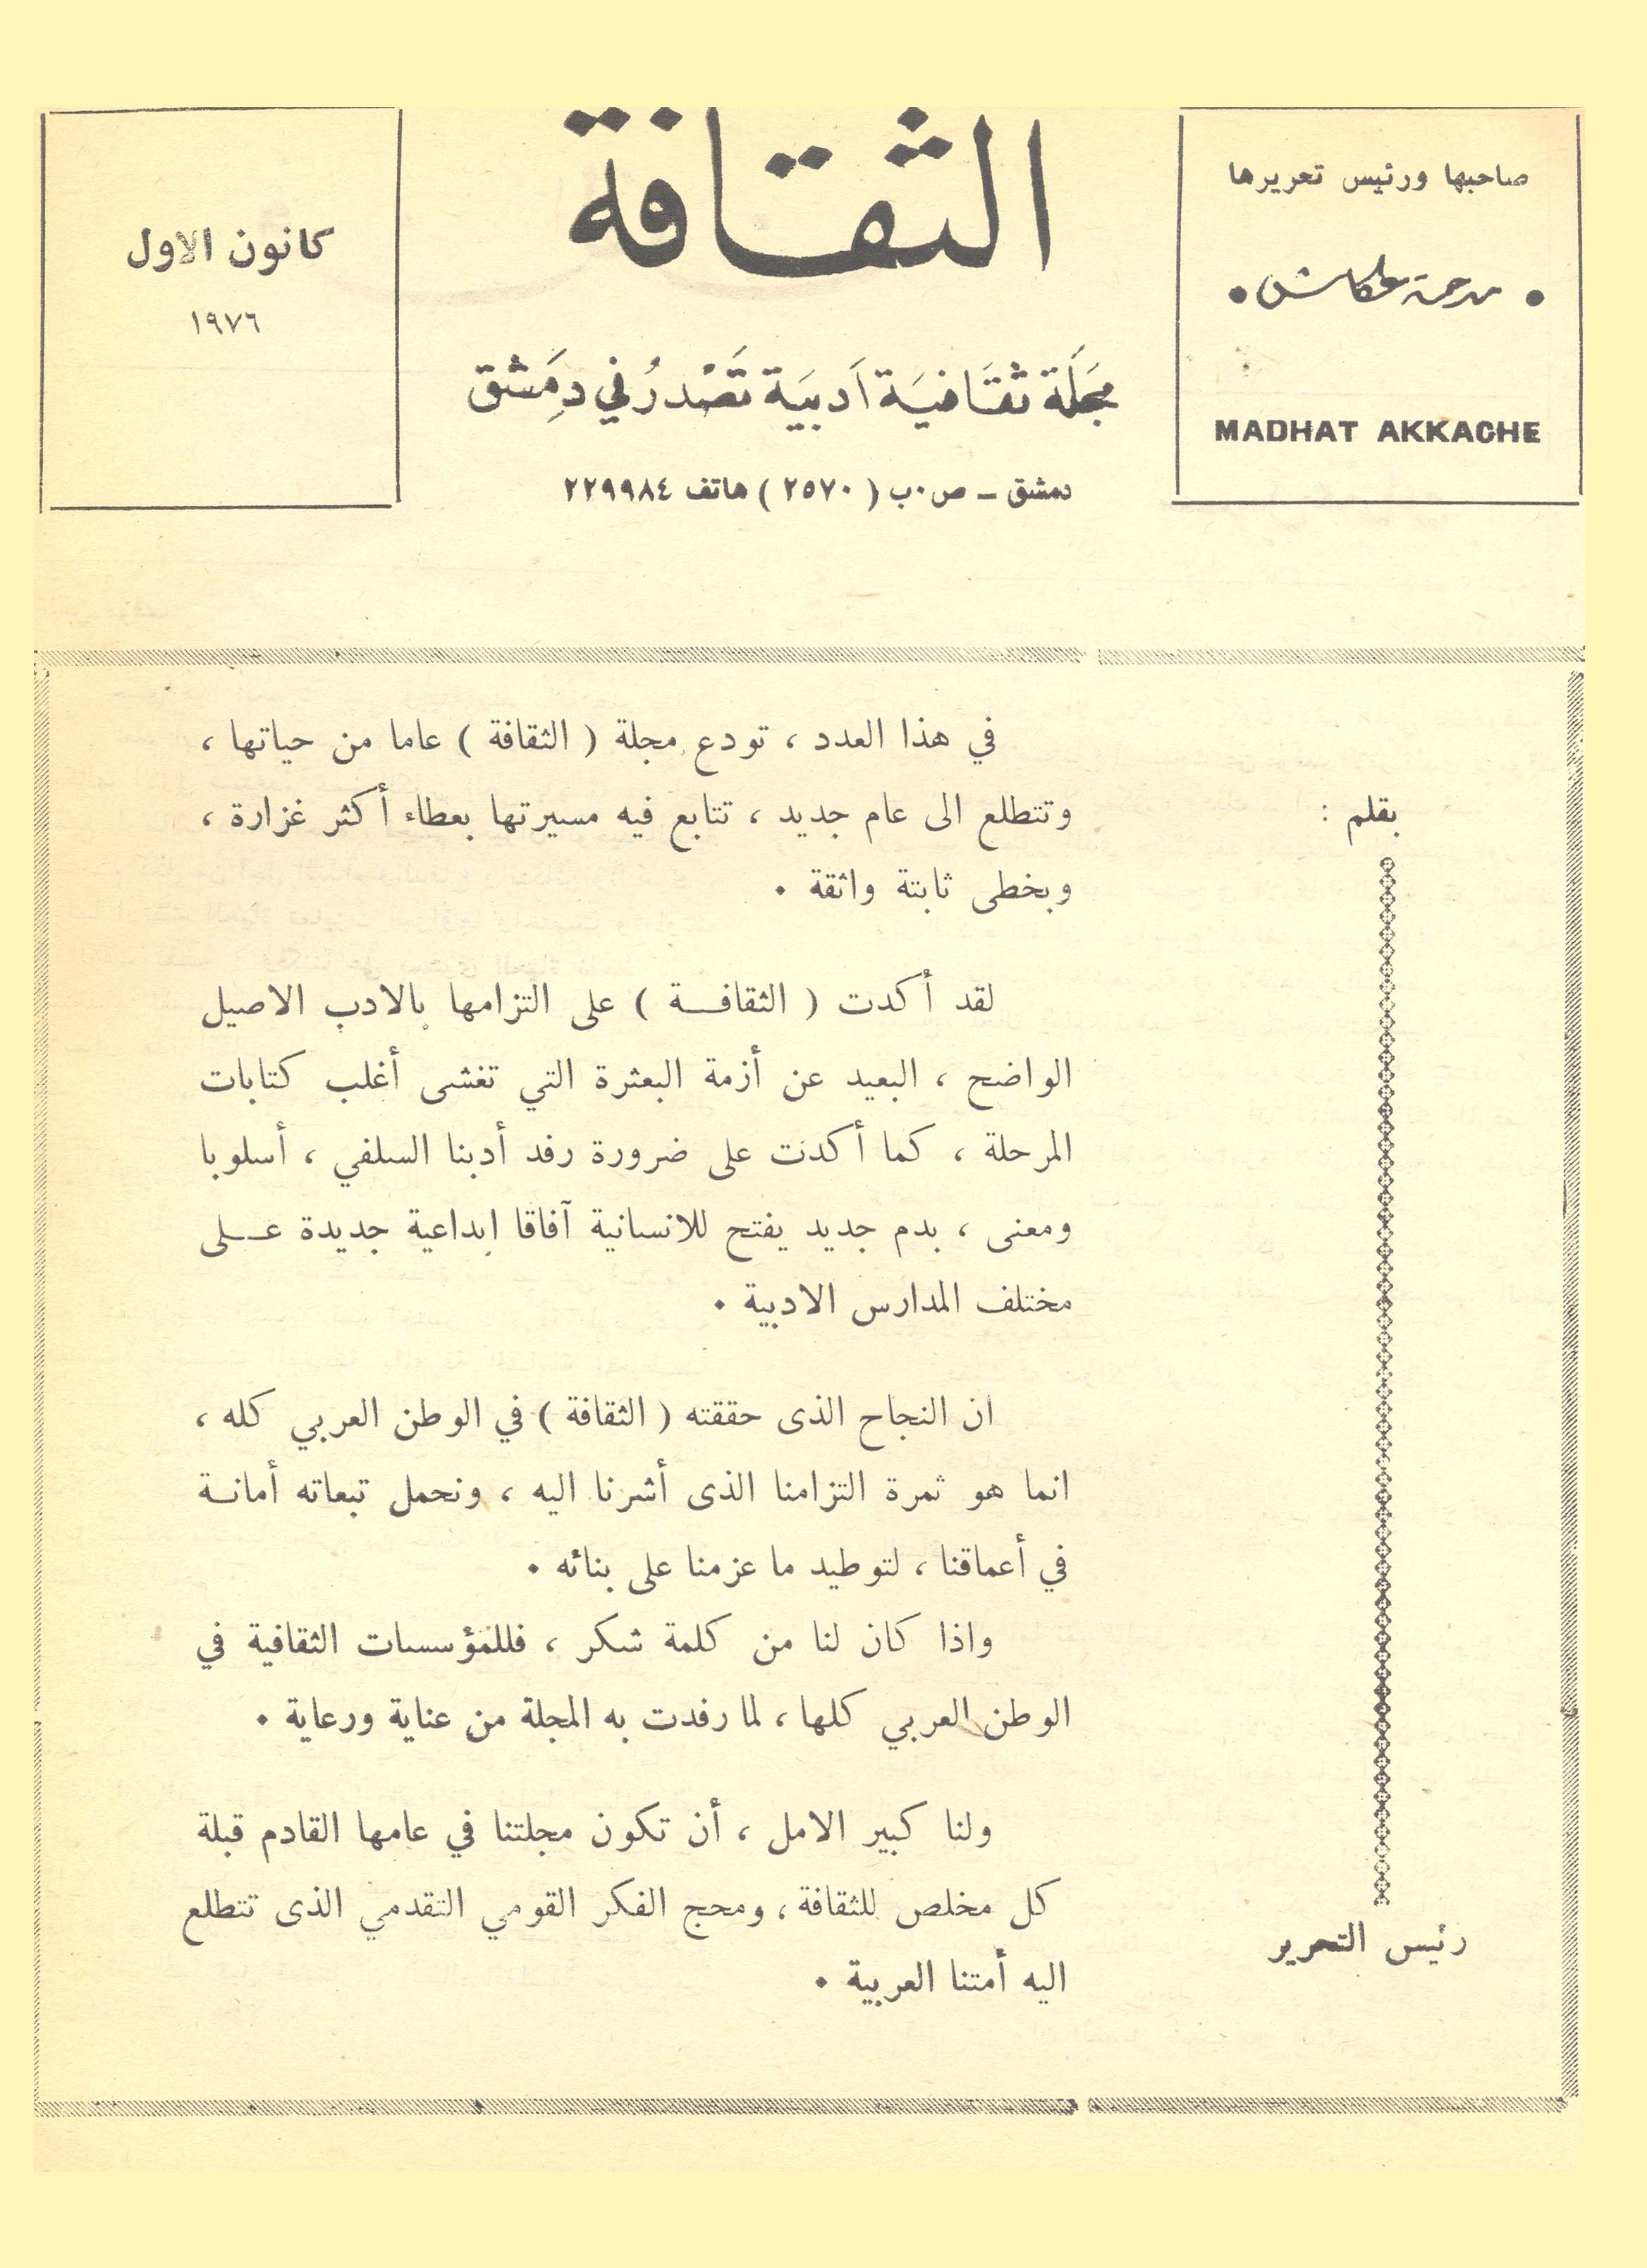 صاحبها ورئيس تحريرها
مدحة عكاش
MADHAT AKKACHE
الثقافة
مَجَلَة ثقَافيَة اَدبيَة تَصْدرُ في دِمَشق
دمشق ــ ص٠ب ( ٢٥٧٠ ) هاتف ٢٢٩٩٨٤
كانون الاول
١٩٧٦
بقلم :
رئيس التحرير
في هذا العدد ، تودع مجلة ( الثقافة ) عاما من حياتها ،
وتتطلع الى عام جديد ، تتابع فيه مسيرتها بعطاء أكثر غزارة ،
وبخطى ثابتة واثقة ٠
لقد أكدت ( الثقافـــة ) على التزامها بالادب الاصيل
الواضح ، البعيد عن أزمة البعثرة التي تغشى أغلب كتابات
المرحلة ، كما أكدت على ضرورة رفد أدبنا السلفي ، أسلوبا
ومعنى ، بدم جديد يفتح للانسانية آفاقا ابداعية جديدة عـــلى
مختلف المدارس الادبية ٠
ان النجاح الذى حققته ( الثقافة ) في الوطن العربي كله ،
انما هو ثمرة التزامنا الذى أشرنا اليه ، ونحمل تبعاته أمانـة
في أعماقنا ، لتوطيد ما عزمنا على بنائه ٠
واذا كان لنا من كلمة شكر ، فللمؤسسات الثقافية في
الوطن العربي كلها ، لما رفدت به المجلة من عناية ورعاية ٠
ولنا كبير الامل ، أن تكون مجلتنا في عامها القادم قبلة
كل مخلص للثقافة ، ومحج الفكر القومي التقدمي الذى تتطلع
اليه أمتنا العربية ٠